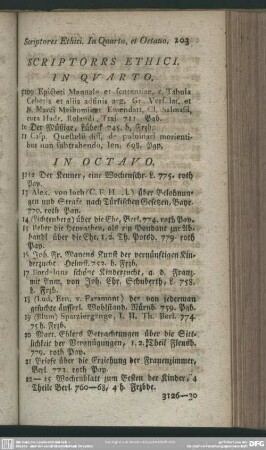 Scriptores Ethici. In Quarto, et Octavo. 203
SCRIPTORRS ETHICI.
IN QVARTO.
3109 Epicteti Manuale et sententiae, c. Tabula
Cebetis et aliis adfinis arg. Gr. Vers. lat. et
M. Marci Meibomii. Emendatt. Cl. Salmasii,
cura Hadr. Relandi, Traj. 711. Pap.
10 Der Müßige, Lübeck 745. h. Frzb.
11 Casp. Questelii diss. de pulvinari morientibus
non subtrahendo, Ien. 698. Pap.
IN OCTAVO.
3112 Der Kenner, eine Wochenschr. L. 775. roth
Pap.
13 Alex. von Joch (C. F. H. .l.) über Belohnungen
und Strafe nach Türkischen Gesetzen, Bayr.
770. roth Pap.
14 (Lichtenberg) über die Ehe, Berl. 774. roth Pap.
15 Ueber die Heyrathen, als ein Pendant zur Abhandl.
über die Ehe, 1. 2. Th. Potsd. 779 roth
Pap.
16 Joh. Fr. Mayens Kunst der vernünftigen Kinderzucht
Helmst. 752. h. Frzb.
17 schöne Kinderzucht, a. d. Franz.
mit Anm. von Joh. Ehr. Schubarth, L. 758.
h. Frzb.
18 (Lud. Ern. v. Faramont) der von jederman
gesuchte äusserl. Wohlstand, Nürnb. 759. Pap.
19 (Blum) Spaziergänge, I. II. Th. Berl. 774.
75 h. Frzb.
20 Mart. Ehlers Betrachtungen über die Sittlichkeit
der Vergnügungen, 1. 2. Theil Flensb.
779. roth Pap.
21 Briefe über die Erziehung der Frauenzimmer,
Berl. 773. roth Pap.
22—25 Wochenblatt zum Besten der Kinder, 4
Theile Berl. 760—68, 4 h. Frzbde.
3126—30